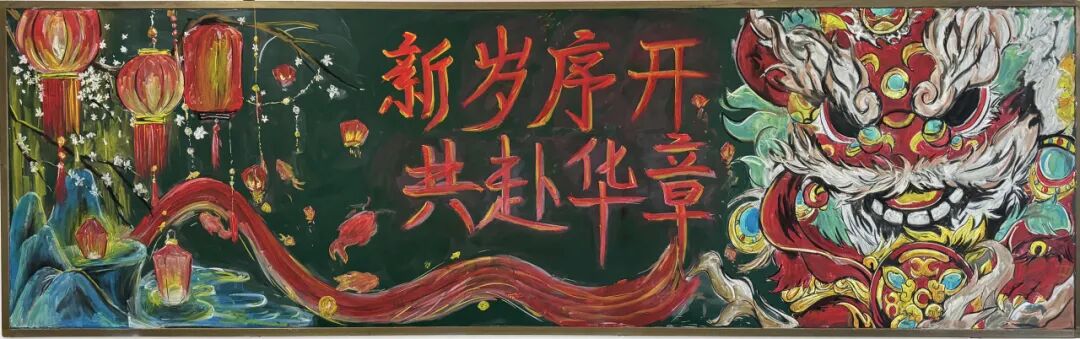 新岁序开
共赴华章